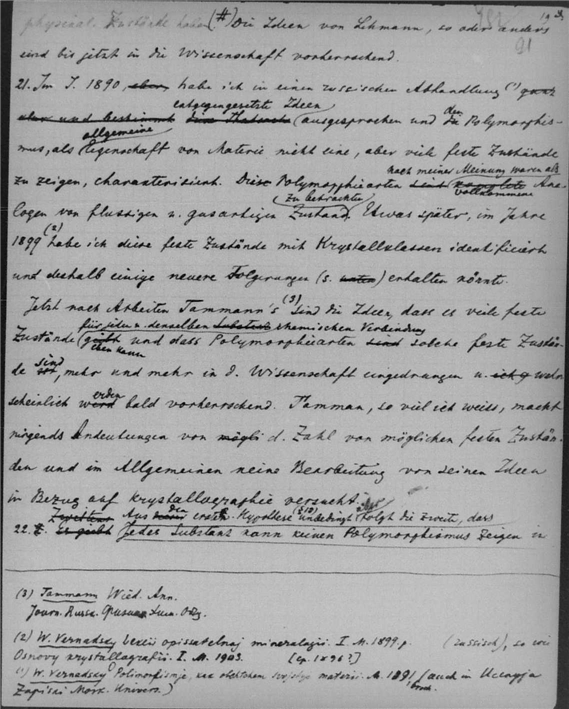 physical. Zustände haben (#) Die Ideen von Lehmann, so oder anders
sind bis jetzt in die Wissenschaft vorherrschend.
91
21. Im J. 1890, habe ich in einen russischen Abhandlung (1)
entgegengesetzte Ideen
und bestimmt (ausgesprochen und den Polymorphis-
allgemeine
mus, als Eigenschaft von Materie nicht eine, aber viele feste Zustände
nach meiner Meinung waren als
zu zeigen, charakterisiert. Diese Polymorphiearten sind complete Ana-
vollkommene
zu betrachten
logen von flussigen u. gasartigen Zustand. Etwas später, im Jahre
1899 (2) habe ich diese feste Zustände mit Krystallclassen identificiert
und deshalb einige neuere Folgerungen (s. unten) erhalten könnte.
Jetzt nach Arbeiten Tammann's (3) sind die Ideen, dass es viele feste
für jeden u. denselben chemischen Verbindung
Zustände (giebt und dass Polymorphiearten sind solche feste Zustän-
de sind, mehr und mehr in d. Wissenschaft eingedrungen u. wahr
scheinlich werden bald vorherrschend. Tamman, so viel ich weiss, macht
nirgends Andeutungen von d. Zahl von möglichen festen Zustän-
den und im Allgemeinen keine Bearbeitung von seinen Ideen
in Bezug auf Krystallographie versucht.
Aus den ersten Hypothese unbedingt folgt die zweite, dass
22. Es giebt Jedes Substanz kann keinen Polymorphismus zeigen
(3) Tammann Wied. Ann.
Journ. Russ.
(2) W. Vernadsky Lekcii opissatelnaj mineralogii. I. M. 1899. (russisch), so wie
Osnovy krystallografii. I. M. 1903.
(1) W. Vernadsky Polimorfismje, kak obchtchem svojstve materii. M. 1891 (auch in Ucenyja
Zapiski Mosk. Univers.)